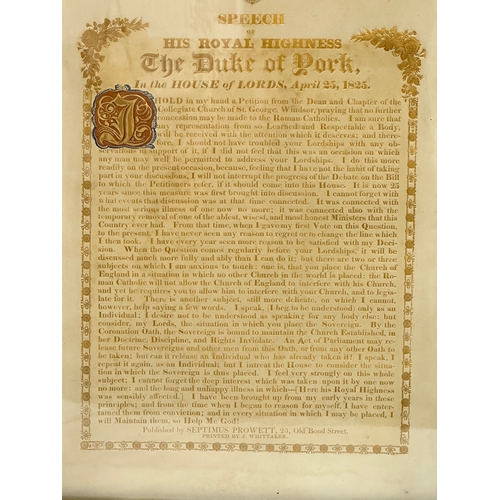 SPEECH
OF
HIS ROYAL HIGHNESS
The Duke of York,
In the HOUSE of LORDS, April 25, 1825.
I HOLD in my hand a Petition from the Dean and Chapter of the
Collegiate Church of St. George, Windsor, praying that no further
concession may be made to the Roman Catholics. I am sure that
any representation from so Learned and Respectable a Body,
will be received with the attention which it deserves; and there-
fore, I should not have troubled your Lordships with any ob-
servations in support of it, if I did not feel that this was an occasion on which
any man may well be permitted to address your Lordships. I do this more
readily on the present occasion, because, feeling that I have not the habit of taking
part in your discussions, I will not interrupt the progress of the Debate on the Bill
to which the Petitioners refer, if it should come into this House. It is now 25
years since this measure was first brought into discussion. I cannot forget with
what events that discussion was at that time connected. It was connected with
the most serious illness of one now no more; it was connected also with the
temporary removal of one of the ablest, wisest, and most honest Ministers that this
Country ever had. From that time, when I gave my first Vote on this Question,
to the present, I have never seen any reason to regret or to change the line which
I then took. I have every year seen more reason to be satisfied with my Deci-
sion. When the Question comes regularly before your Lordships, it will be
discussed much more fully and ably than I can do it; but there are two or three
subjects on which I am anxious to touch: one is, that you place the Church of
England in a situation in which no other Church in the world is placed: the Ro-
man Catholic will not allow the Church of England to interfere with his Church,
and yet he requires you to allow him to interfere with your Church, and to legis-
late for it. There is another subject, still more delicate, on which I cannot,
however, help saying a few words. I speak, (I beg to be understood) only as an
Individual; I desire not to be understood as speaking for any body else: but
consider, my Lords, the situation in which you place the Sovereign. By the
Coronation Oath, the Sovereign is bound to maintain the Church Established, in
her Doctrine, Discipline, and Rights Inviolate. An Act of Parliament may re-
lease future Sovereigns and other men from this Oath, or from any other Oath to
be taken; but can it release an Individual who has already taken it? I speak, I
repeat it again, as an Individual; but I intreat the House to consider the situa-
tion in which the Sovereign is thus placed. I feel very strongly on this whole
subject; I cannot forget the deep interest which was taken upon it by one now
no more; and the long and unhappy illness in which—[Here his Royal Highness
was sensibly affected.] I have been brought up from my early years in these
principles; and from the time when I began to reason for myself, I have enter-
tained them from conviction; and in every situation in which I may be placed, I
will Maintain them, so Help Me God!
Published by SEPTIMUS PROWETT, 23, Old Bond-Street.
PRINTED BY J. WHITTAKER.